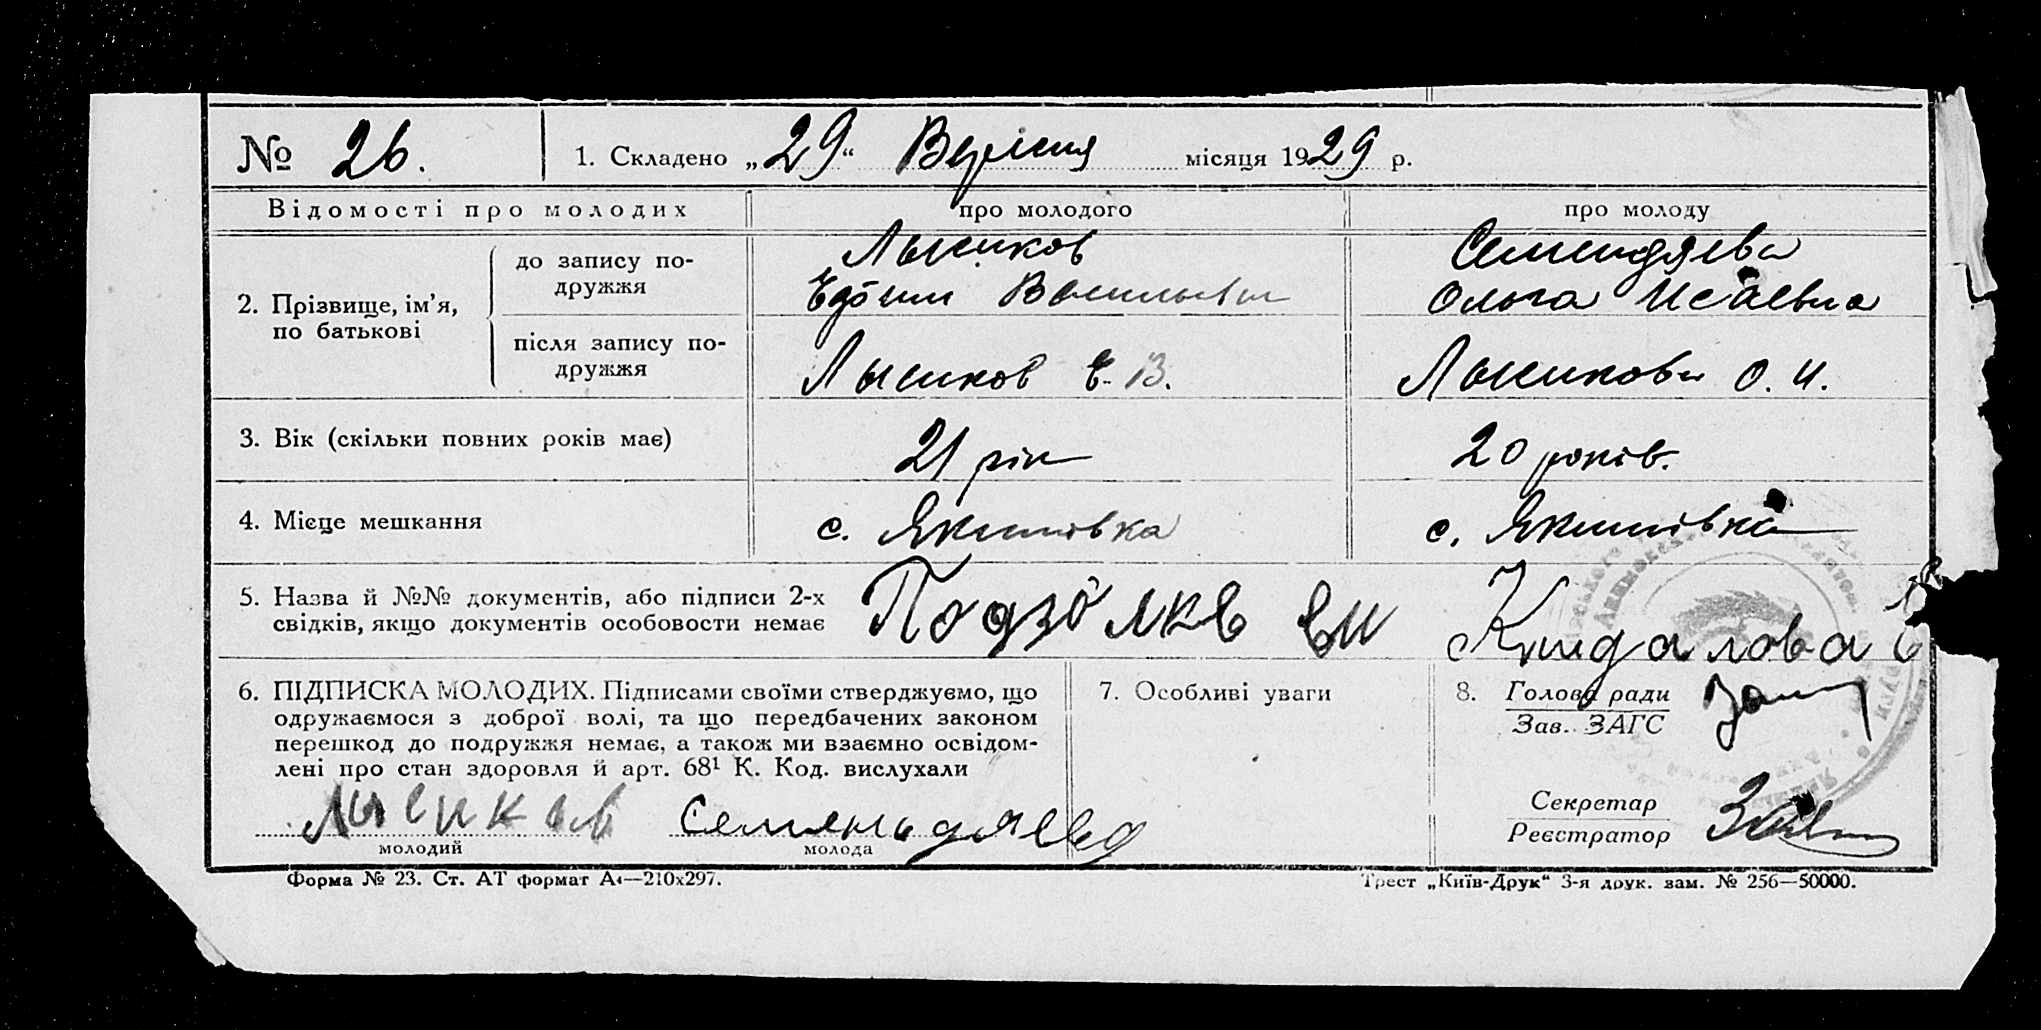 № 26. 1. Складено „29“ Вересня місяця 1929 р.
Відомості про молодих про молодого про молоду
2. Прізвище, ім’я, по батькові
до запису подружжя
Лысиков
Семендяева
Ольга Исаевна
після запису подружжя
Лысиков Е. В.
Лысикова О. И.
3. Вік (скільки повних років має) 21 рік 20 років.
4. Місце мешкання с. Якимовка с. Якимівка
5. Назва й №№ документів, або підписи 2-х
свідків, якщо документів особовости немає
6. ПІДПИСКА МОЛОДИХ. Підписами своїми стверджуємо, що
одружаємося з доброї волі, та що передбачених законом
перешкод до подружжя немає, а також ми взаємно освідом-
лені про стан здоровля й арт. 68¹ К. Код. вислухали
Лысиков
молодий
молода
7. Особливі уваги
8. Голова ради
Зав. ЗАГС
Секретар
Реєстратор
Форма № 23. Ст. АТ формат А₄—210х297.
Трест „Київ-Друк“ 3-я друк. зам. № 256—50000.